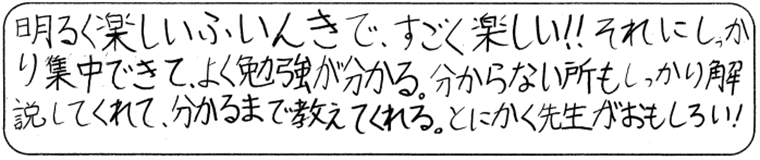 明るく楽しいふいんきで、すごく楽しい!!それにしっか
り集中できて、よく勉強が分かる。分からない所もしっかり解
説してくれて、分かるまで教えてくれる。とにかく先生がおもしろい!